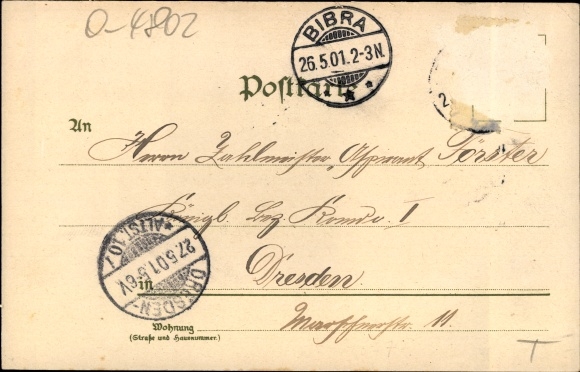 O-4802
BIBRA
26.5.01.2-3N.
Postkarte
2
An
Herrn Zahlmeister Aspirant Förster
Königl. Bez. Komdo. I
DRESDEN-ALTST.10.
27.5.01.5-6V.
in Dresden.
Wohnung
(Straße und Hausnummer.)
Marschnerstr. 11.
T